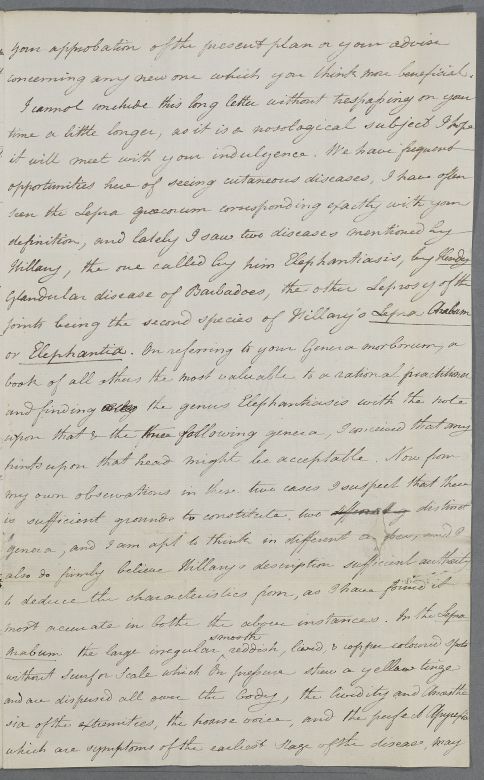 your approbation of the present plan or your advise
concerning any new one which you think more beneficial.
I cannot conclude this long letter without trespassing on your
time a little longer, as it is a nosological subject I hope
it will meet with your indulgence. We have frequent
opportunities here of seeing cutaneous diseases, I have often
seen the Lepra græcorum corresponding exactly with your
definition, and lately I saw two diseases mentioned by
Hillary, the one called by him Elephantiasis, by Hendy
Glandular disease of Barbadoes, the other Leprosy of the
joints being the second species of Hillary's Lepra Arabum
or Elephantia. On referring to your Genera morborum, a
book of all others the most valuable to a rational practitioner
and finding the genus Elephantiasis with the note
upon that & the three following genera, I conceived that any
hints upon that head might be acceptable. Now from
my own observations in these two cases I suspect that there
is sufficient grounds to constitute two distinct
genera, and I am apt to think in different orders, and I
also do firmly believe Hillary's description sufficient authority
to deduce the characteristics from, as I have found it
most accurate in both the above instances. In the Lepra
Arabum the large irregular smooth reddish, livid, & copper coloured spots
without scurf or scale which on pressure shew a yellow tinge
and are dispersed all over the body, the lividity and Anæsthe
sia of the extremities, the hoarse voice, and the perfect
which are symptoms of the earliest stage of the disease, may